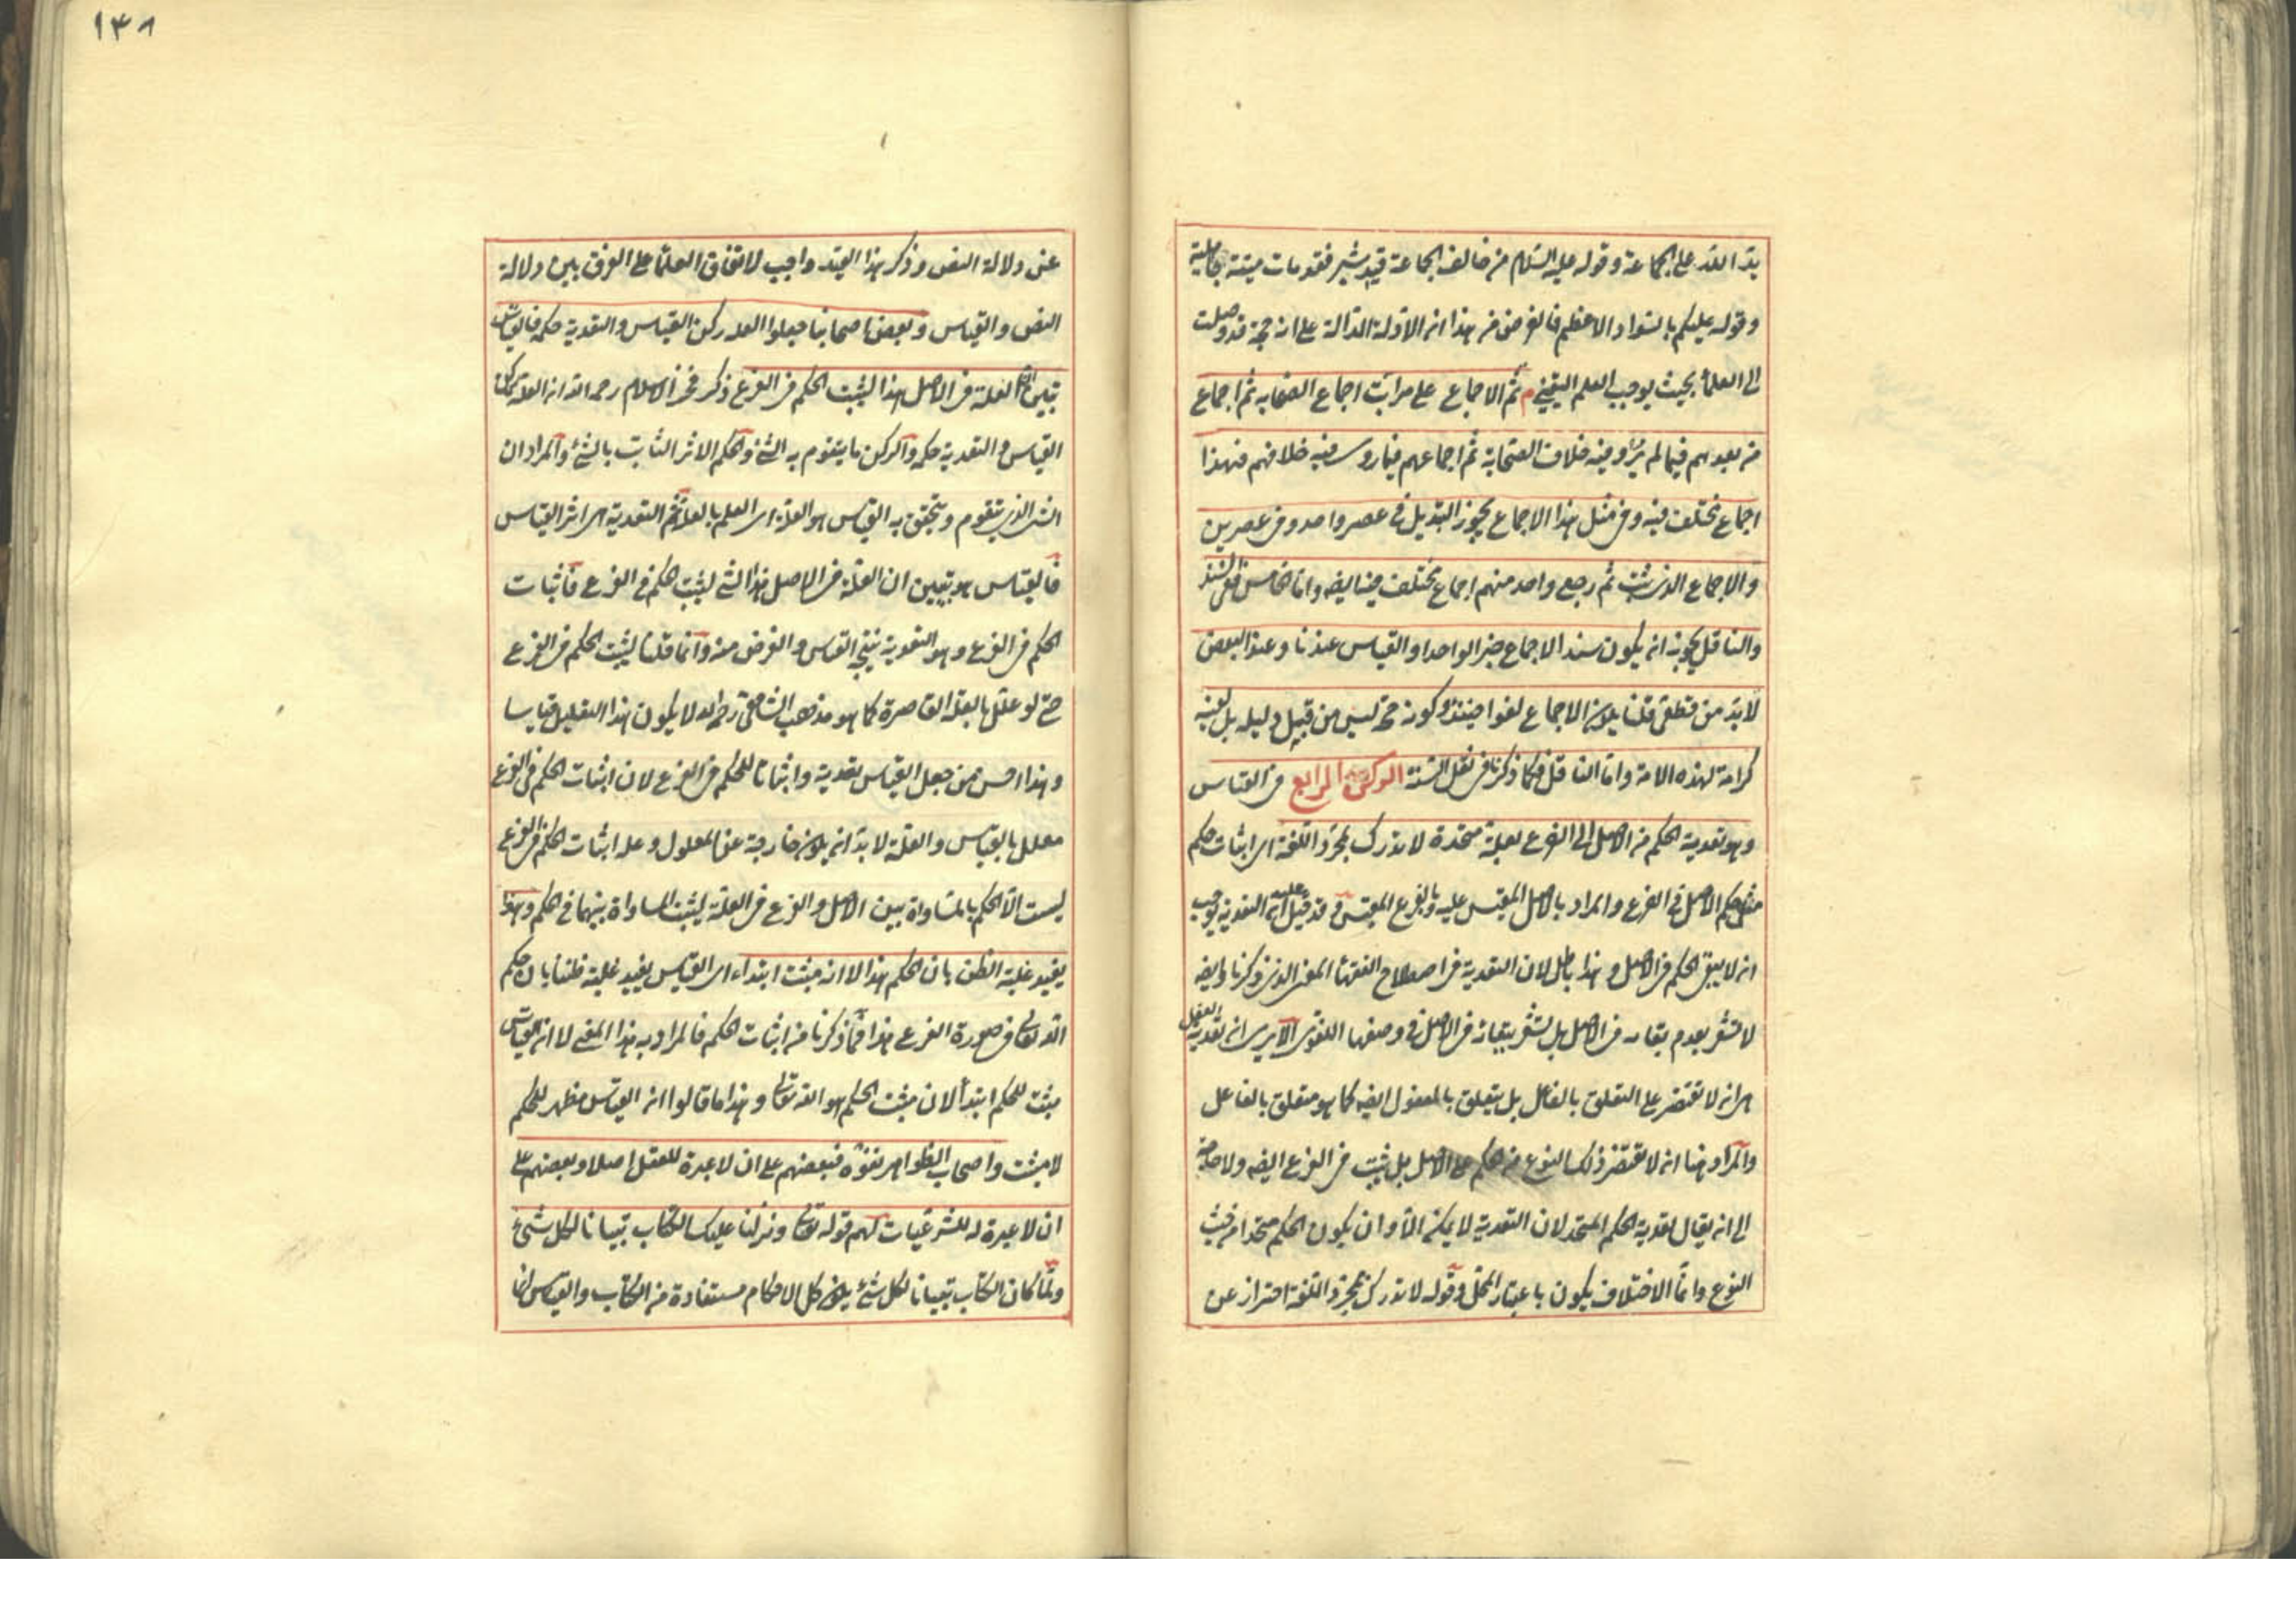 يد الله على الجماعة وقوله عليه السلام من خالف الجماعة قيد شبر فقد مات ميتة جاهلية
وقوله عليكم بالسواد الاعظم فالغرض من هذا ان الادلة الدالة على انه حجة قد وصلت
الى العلماء بحيث يوجب العلم اليقيني م ثم الاجماع على مراتب اجماع الصحابه ثم اجماع
من بعدهم فيما لم يرو فيه خلاف الصحابة ثم اجماعهم فيما روى فيه خلافهم فهذا
اجماع مختلف فيه وفي مثل هذا الاجماع يجوز التبديل في عصر واحد وفي عصرين
والاجماع الذي ثبت ثم رجع واحد منهم اجماع مختلف فيه ايضا واما الخامس ففي السند
والناقل يجوز ان يكون سند الاجماع خبر الواحد او القياس عندنا وعند البعض
لا بد من قطعي قلنا يكون الاجماع لغوا حينئذ وكونه حجة ليس من قبل دليله بل لعينه
كرامة لهذه الامة واما الناقل فكما ذكرنا في نقل السنة الركن الرابع في القياس
وهو تعدية الحكم من الاصل الى الفرع بعلة متحدة لا تدرك بمجرد اللغة اى اثبات حكم
مثل حكم الاصل في الفرع والمراد بالاصل المقيس عليه وبالفرع المقيس وقد قيل عليه ان التعدية توجب
ان لا يبقى الحكم في الاصل وهذا باطل لان التعدية في اصطلاح الفقهاء المعنى الذي ذكرنا وايضا
لا تشعر بعدم بقائه في الاصل بل تشعر ببقائه في الاصل في وضعها اللغوى الا يرى ان تعدية الفعل
هى ان لا تقتصر على التعلق بالفاعل بل يتعلق بالمفعول ايضا كما هو متعلق بالفاعل
والمراد هنا ان لا تقتصر ذلك النوع من الحكم على الاصل بل يثبت في الفرع ايضا ولا حاجة
الى ان يقال تعدية الحكم المتحد لان التعدية لا يمكن الا وان يكون الحكم متحدا من حيث
النوع وانما الاختلاف يكون باعتبار المحل وقوله لا تدرك بمجرد اللغة احتراز عن
١٣٨
عن دلالة النص وذكر هذا القيد واجب لاتفاق العلماء على الفرق بين دلالة
النص والقياس وبعض اصحابنا جعلوا العلة ركن القياس والتعدية حكمه فالقياس
تبيين ان العلة في الاصل هذا ليثبت الحكم في الفرع ذكر فخر الاسلام رحمه الله ان العلة ركن
القياس والتعدية حكمه والركن ما يتقوم به الشئ والحكم الاثر الثابت بالشئ والمراد ان
الشئ الذي يتقوم ويتحقق به القياس هو العلة اى العلم بالعلة ثم التعدية هى اثر القياس
فالقياس هو تبيين ان العلة في الاصل هذا الشئ ليثبت الحكم في الفرع فاثبات
الحكم في الفرع وهو التعدية نتيجة القياس والغرض منه وانما قلنا ليثبت الحكم في الفرع
حتى لو علل بالعلة القاصرة كما هو مذهب الشافعي رحمه الله لا يكون هذا التعليل قياسا
وهذا احسن من جعل القياس تعدية واثباتا للحكم في الفرع لان اثبات الحكم في الفرع
معلل بالقياس والعلة لا بد ان يكون خارجة عن المعلول وعلة اثبات الحكم في الفرع
ليست الا الحكم بالمساواة بين الاصل والفرع في العلة ليثبت المساواة بينهما في الحكم وهذا
يفيد غلبة الظن بان الحكم هذا لا انه مثبت ابتداء اى القياس يفيد غلبة ظننا بان حكم
الله تعالى في صورة الفرع هذا فما ذكرنا من اثبات الحكم فالمراد به هذا المعنى لا ان القياس
مثبت للحكم ابتدأ لان مثبت الحكم هو الله تعالى وهذا ما قالوا ان القياس مظهر للحكم
لا مثبت واصحاب الظواهر نفوه فبعضهم على ان لا عبرة للعقل اصلا وبعضهم على
ان لا عبرة له للشرعيات لهم قوله تعالى ونزلنا عليك الكتاب تبيانا لكل شئ
ولما كان الكتاب تبيانا لكل شئ يكون كل الاحكام مستفادة من الكتاب والقياس انما